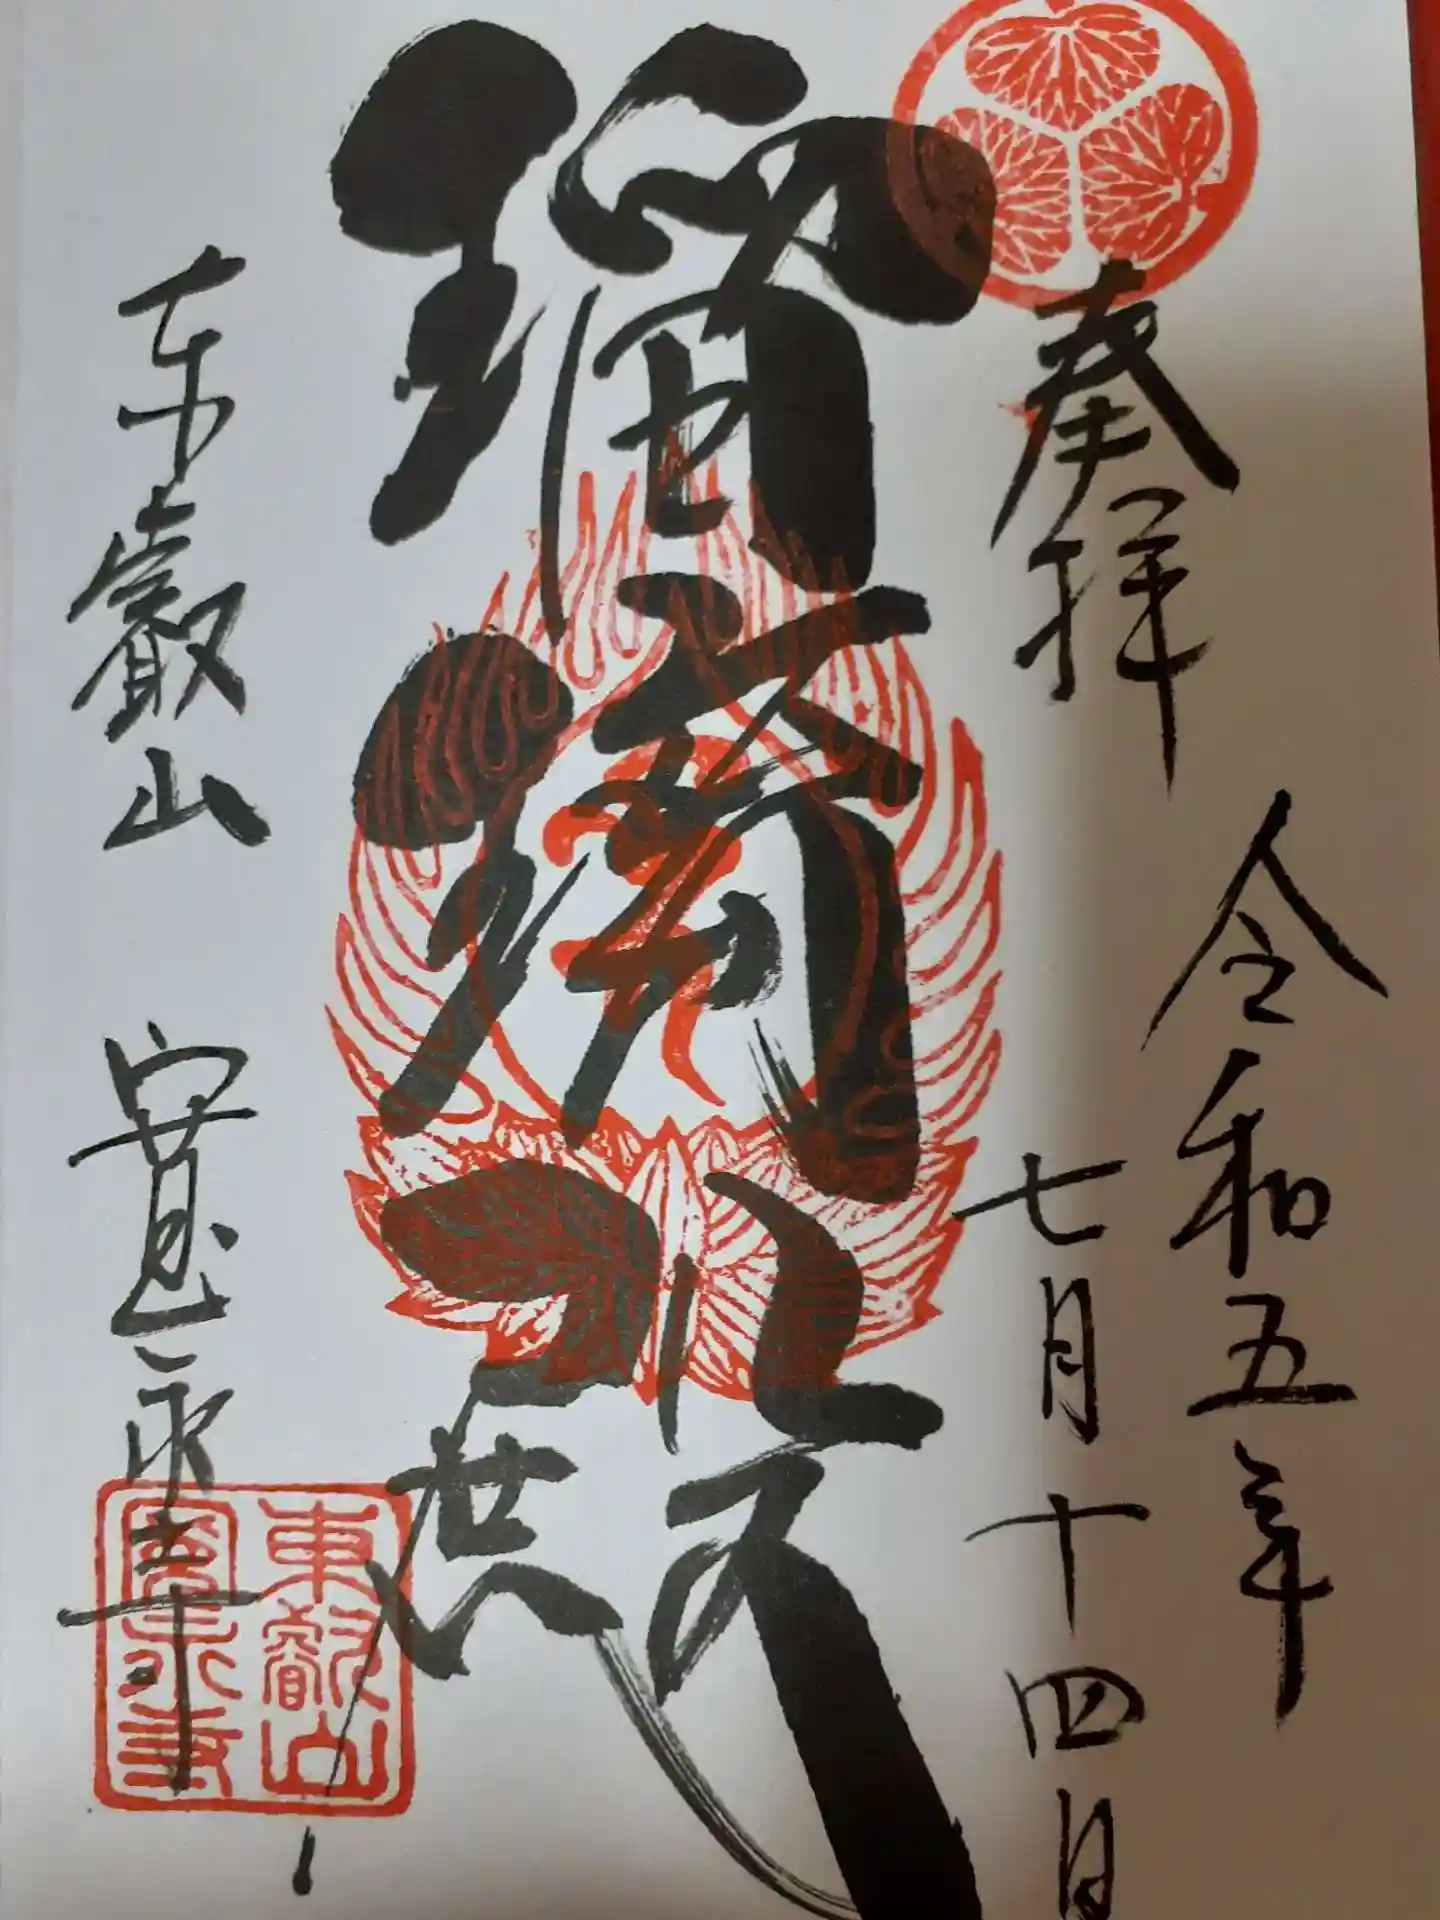 奉拝
令和五年
七月十四日
瑠璃殿
東叡山
寛永寺
東叡山
寛永寺